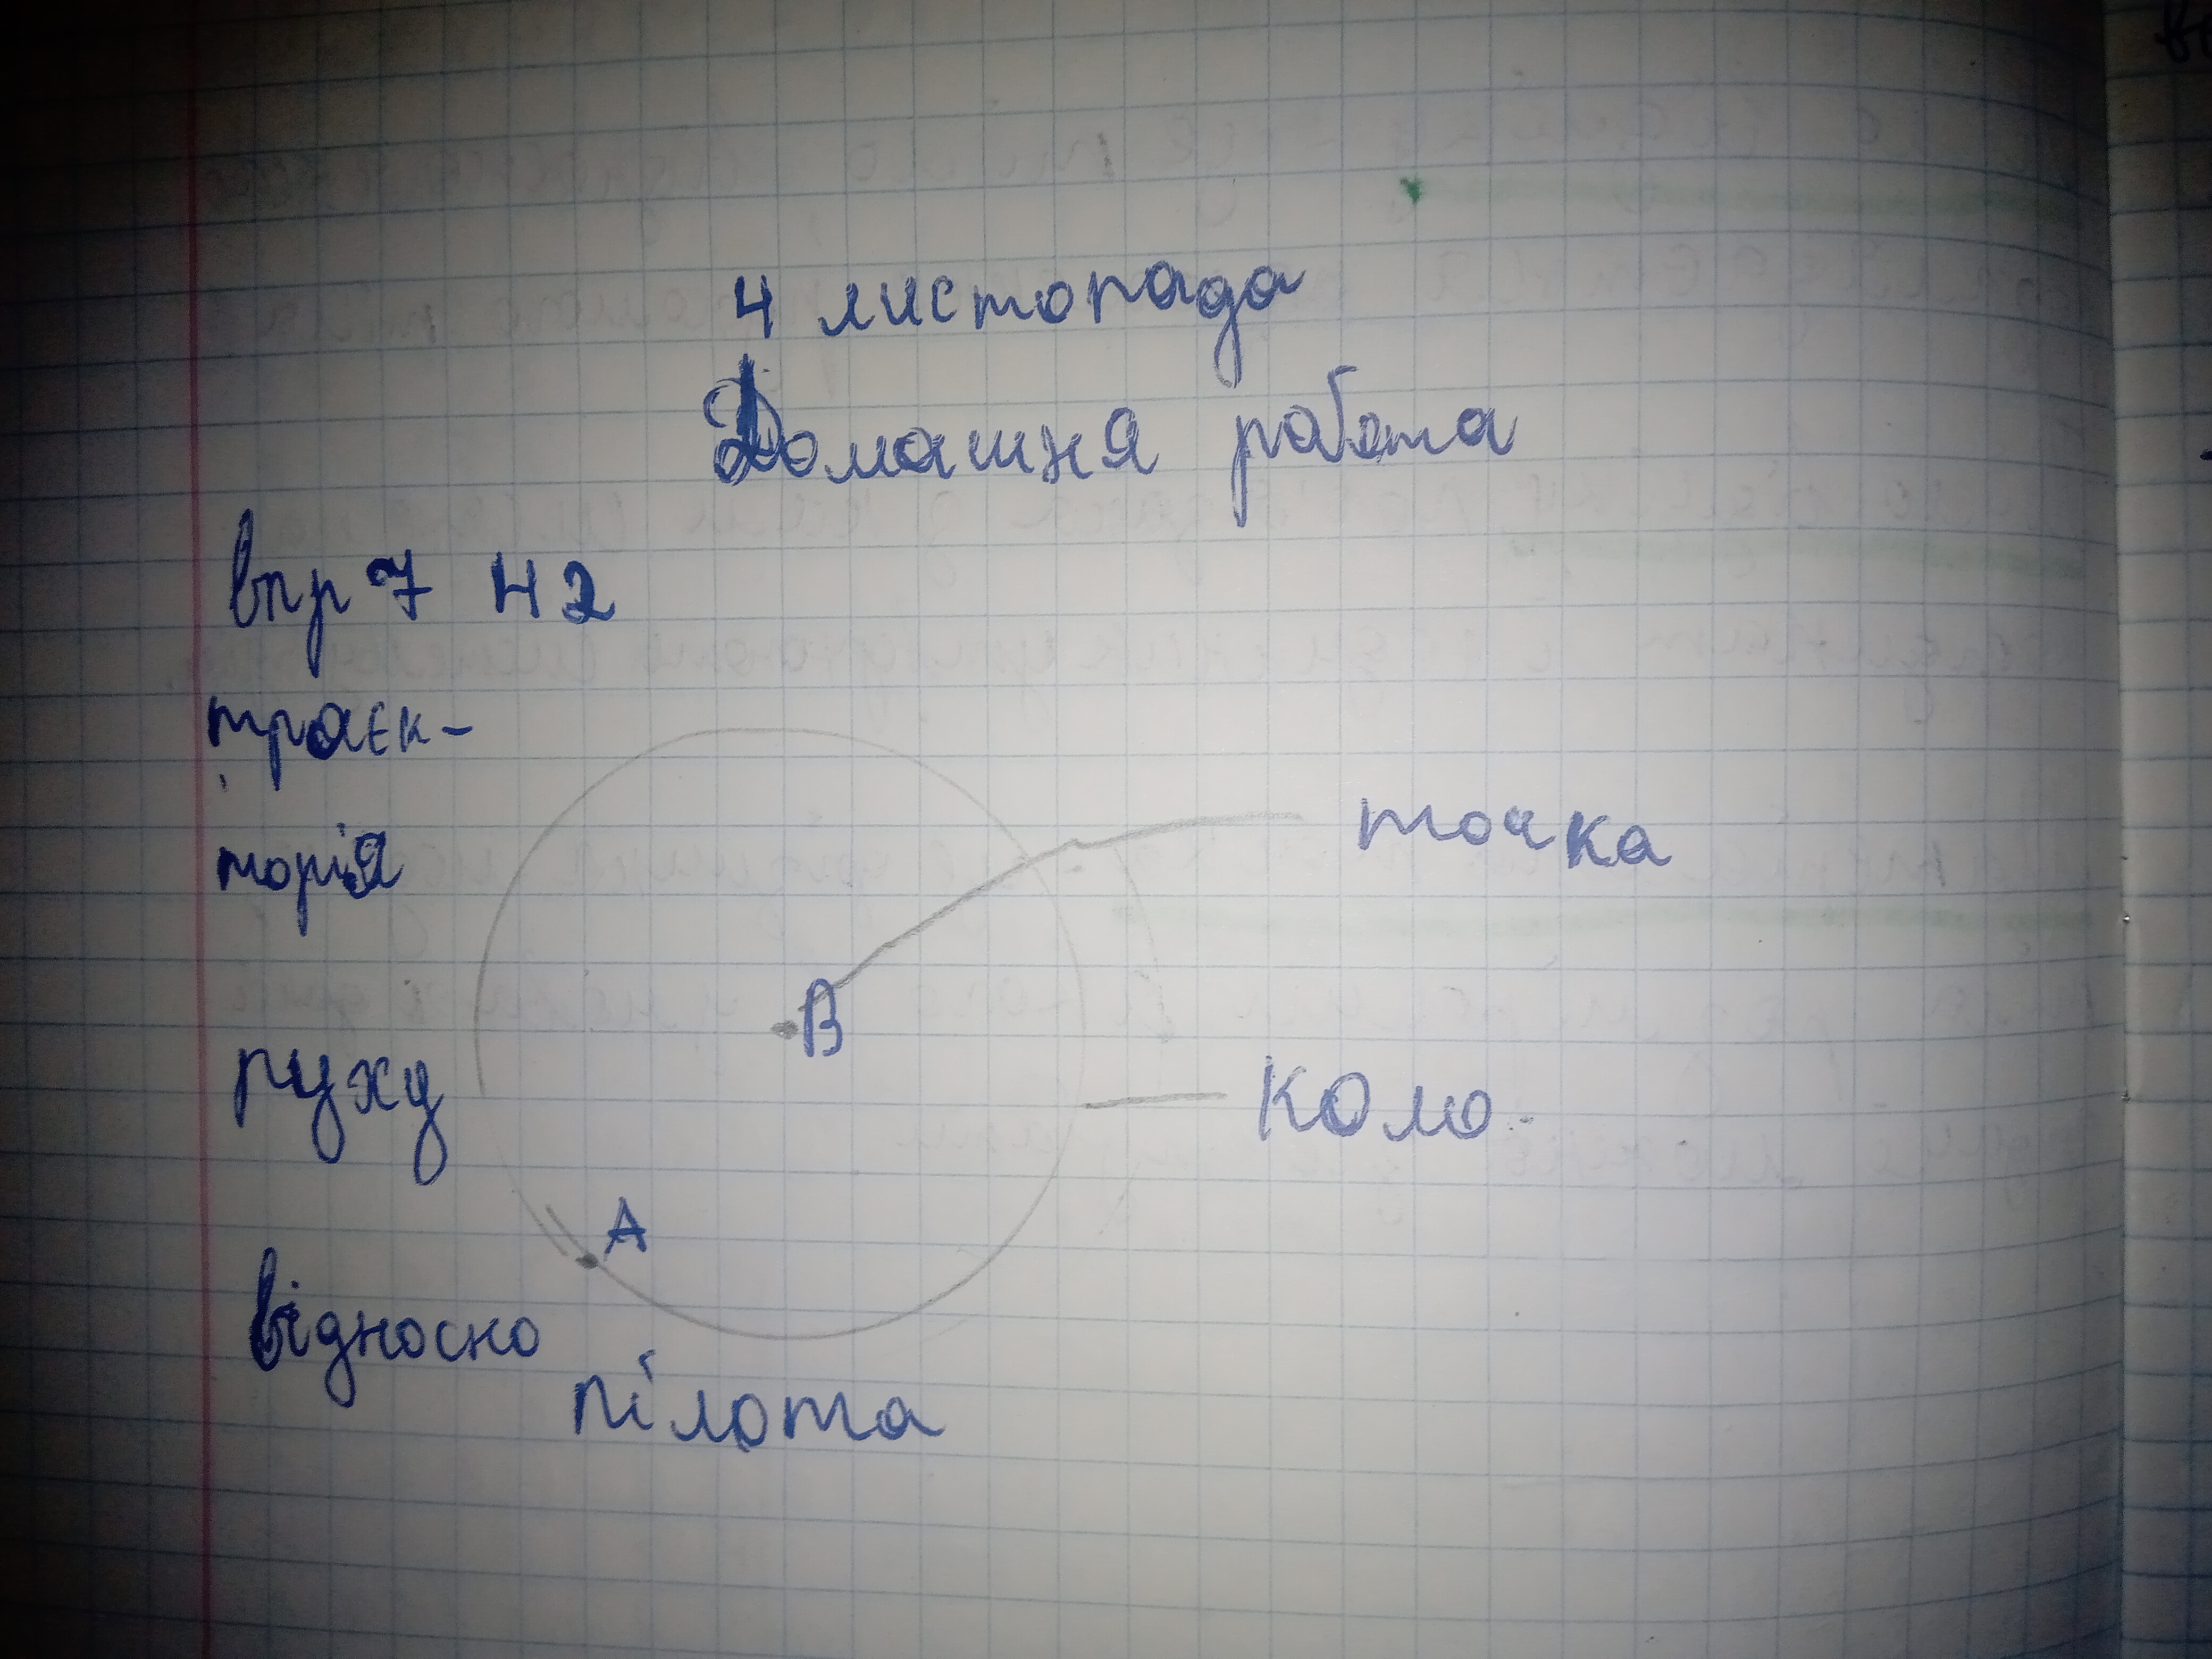 4 листопада
Домашня робота
впр 7 Н 2
траєк-
торія
точка
В
руху
коло.
А
відносно
пілота